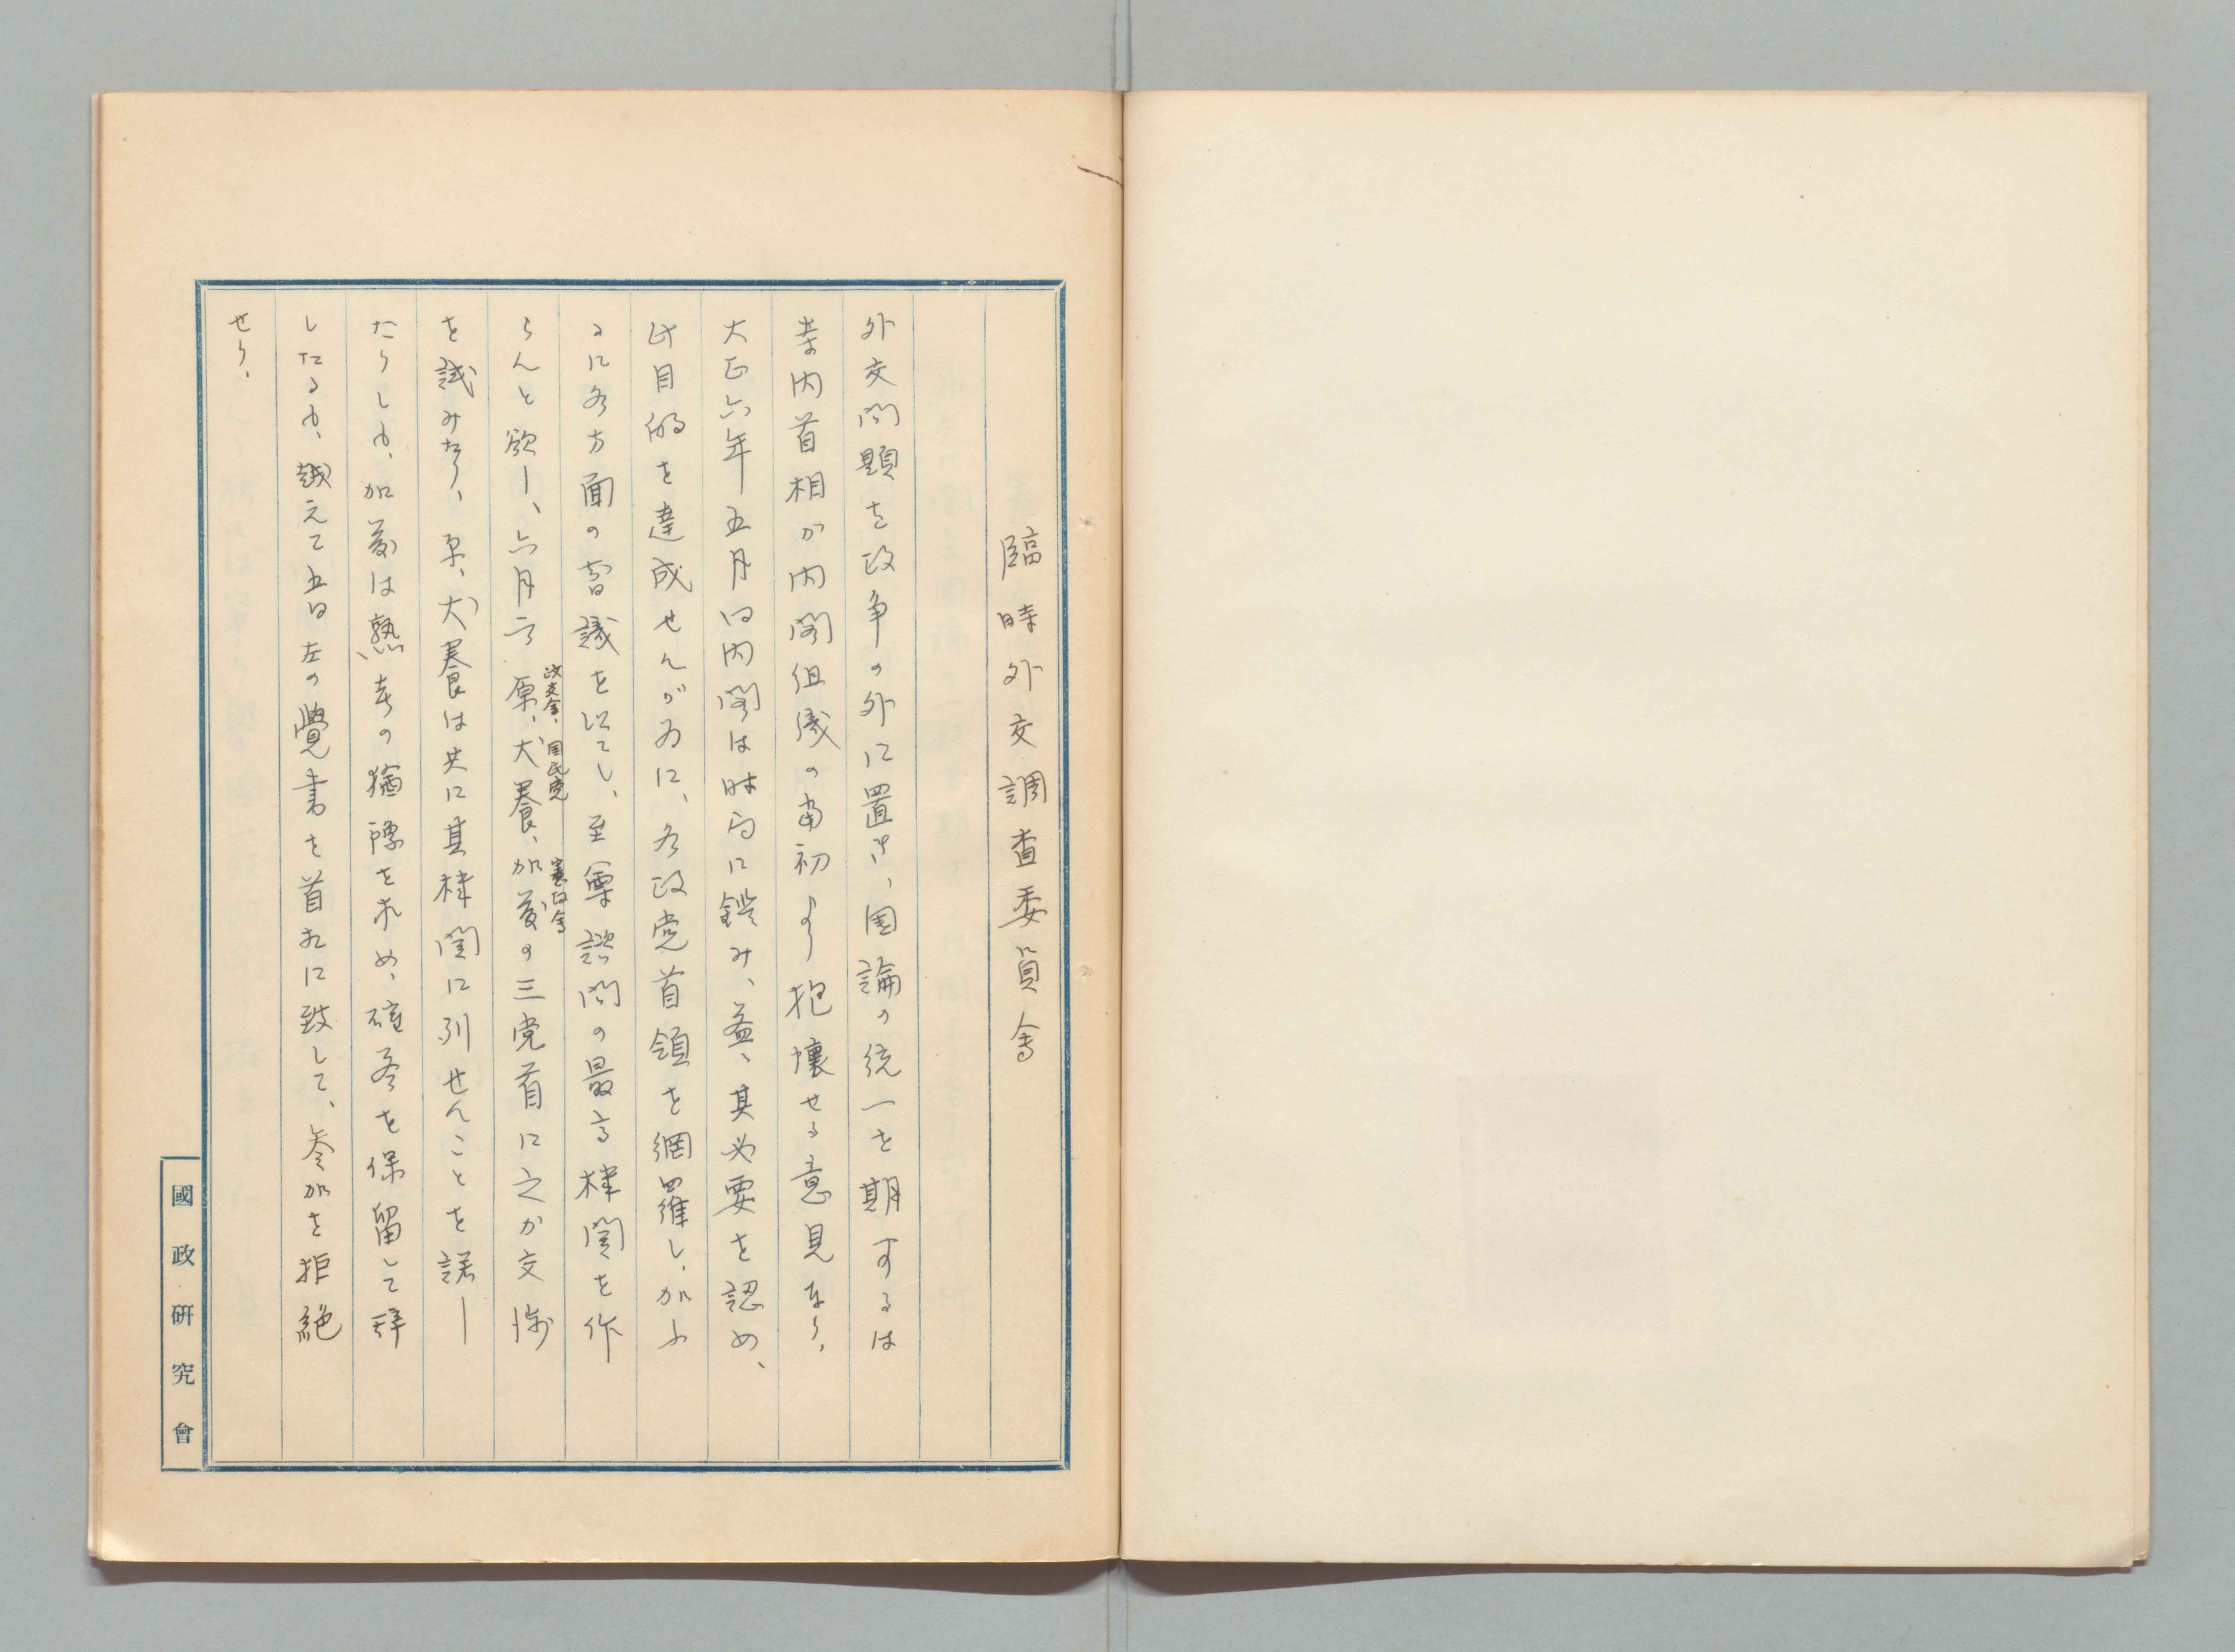 臨時外交調査委員会
外交問題を政争の外に置き、国論の統一を期するは
寺内首相が内閣組織の当初より抱懐せる意見なり、
大正六年五月同内閣は時局に鑑み、益、其必要を認め、
此目的を達成せんが為に、各政党首領を網羅し、加ふ
るに各方面の智識を以てし、至尊諮問の最高機関を作
らんと欲し、六月二日原、犬養、加藤の三党首に之か交渉
政友会、国民党 憲政会
を試みたり、原、犬養は共に其機関に列せんことを諾し
たりしも、加藤は熟考の猶予を求め、確答を保留して辞
したるも、越えて五日左の覺書を首相に致して、参加を拒絶
せり、
國政研究會